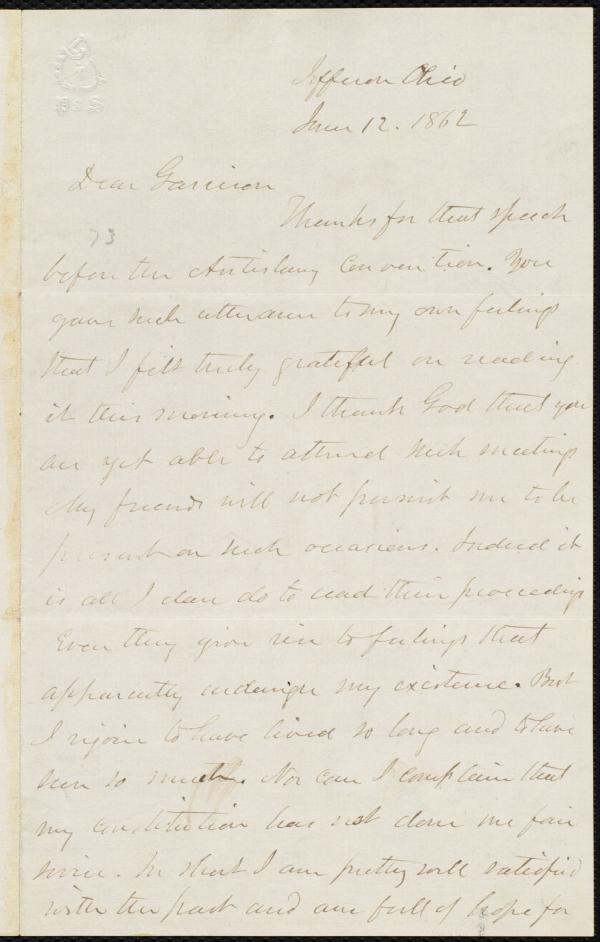 Jefferson Ohio
June 12. 1862
Dear Garrison
Thanks for that speech
73
before the Antislavery Convention. You
gave such utterance to my own feelings
that I felt truly grateful on reading
it this morning. I thank God that you
are yet able to attend such meetings
My friends will not permit me to be
present on such occasions. Indeed it
is all I dare do to read their proceedings
Even they give rise to feelings that
apparently endanger my existence. But
I rejoice to have lived so long and to have
seen so much. Nor can I complain that
my constitution has not done me fair
service. In short I am pretty well satisfied
with the past and am full of hope for